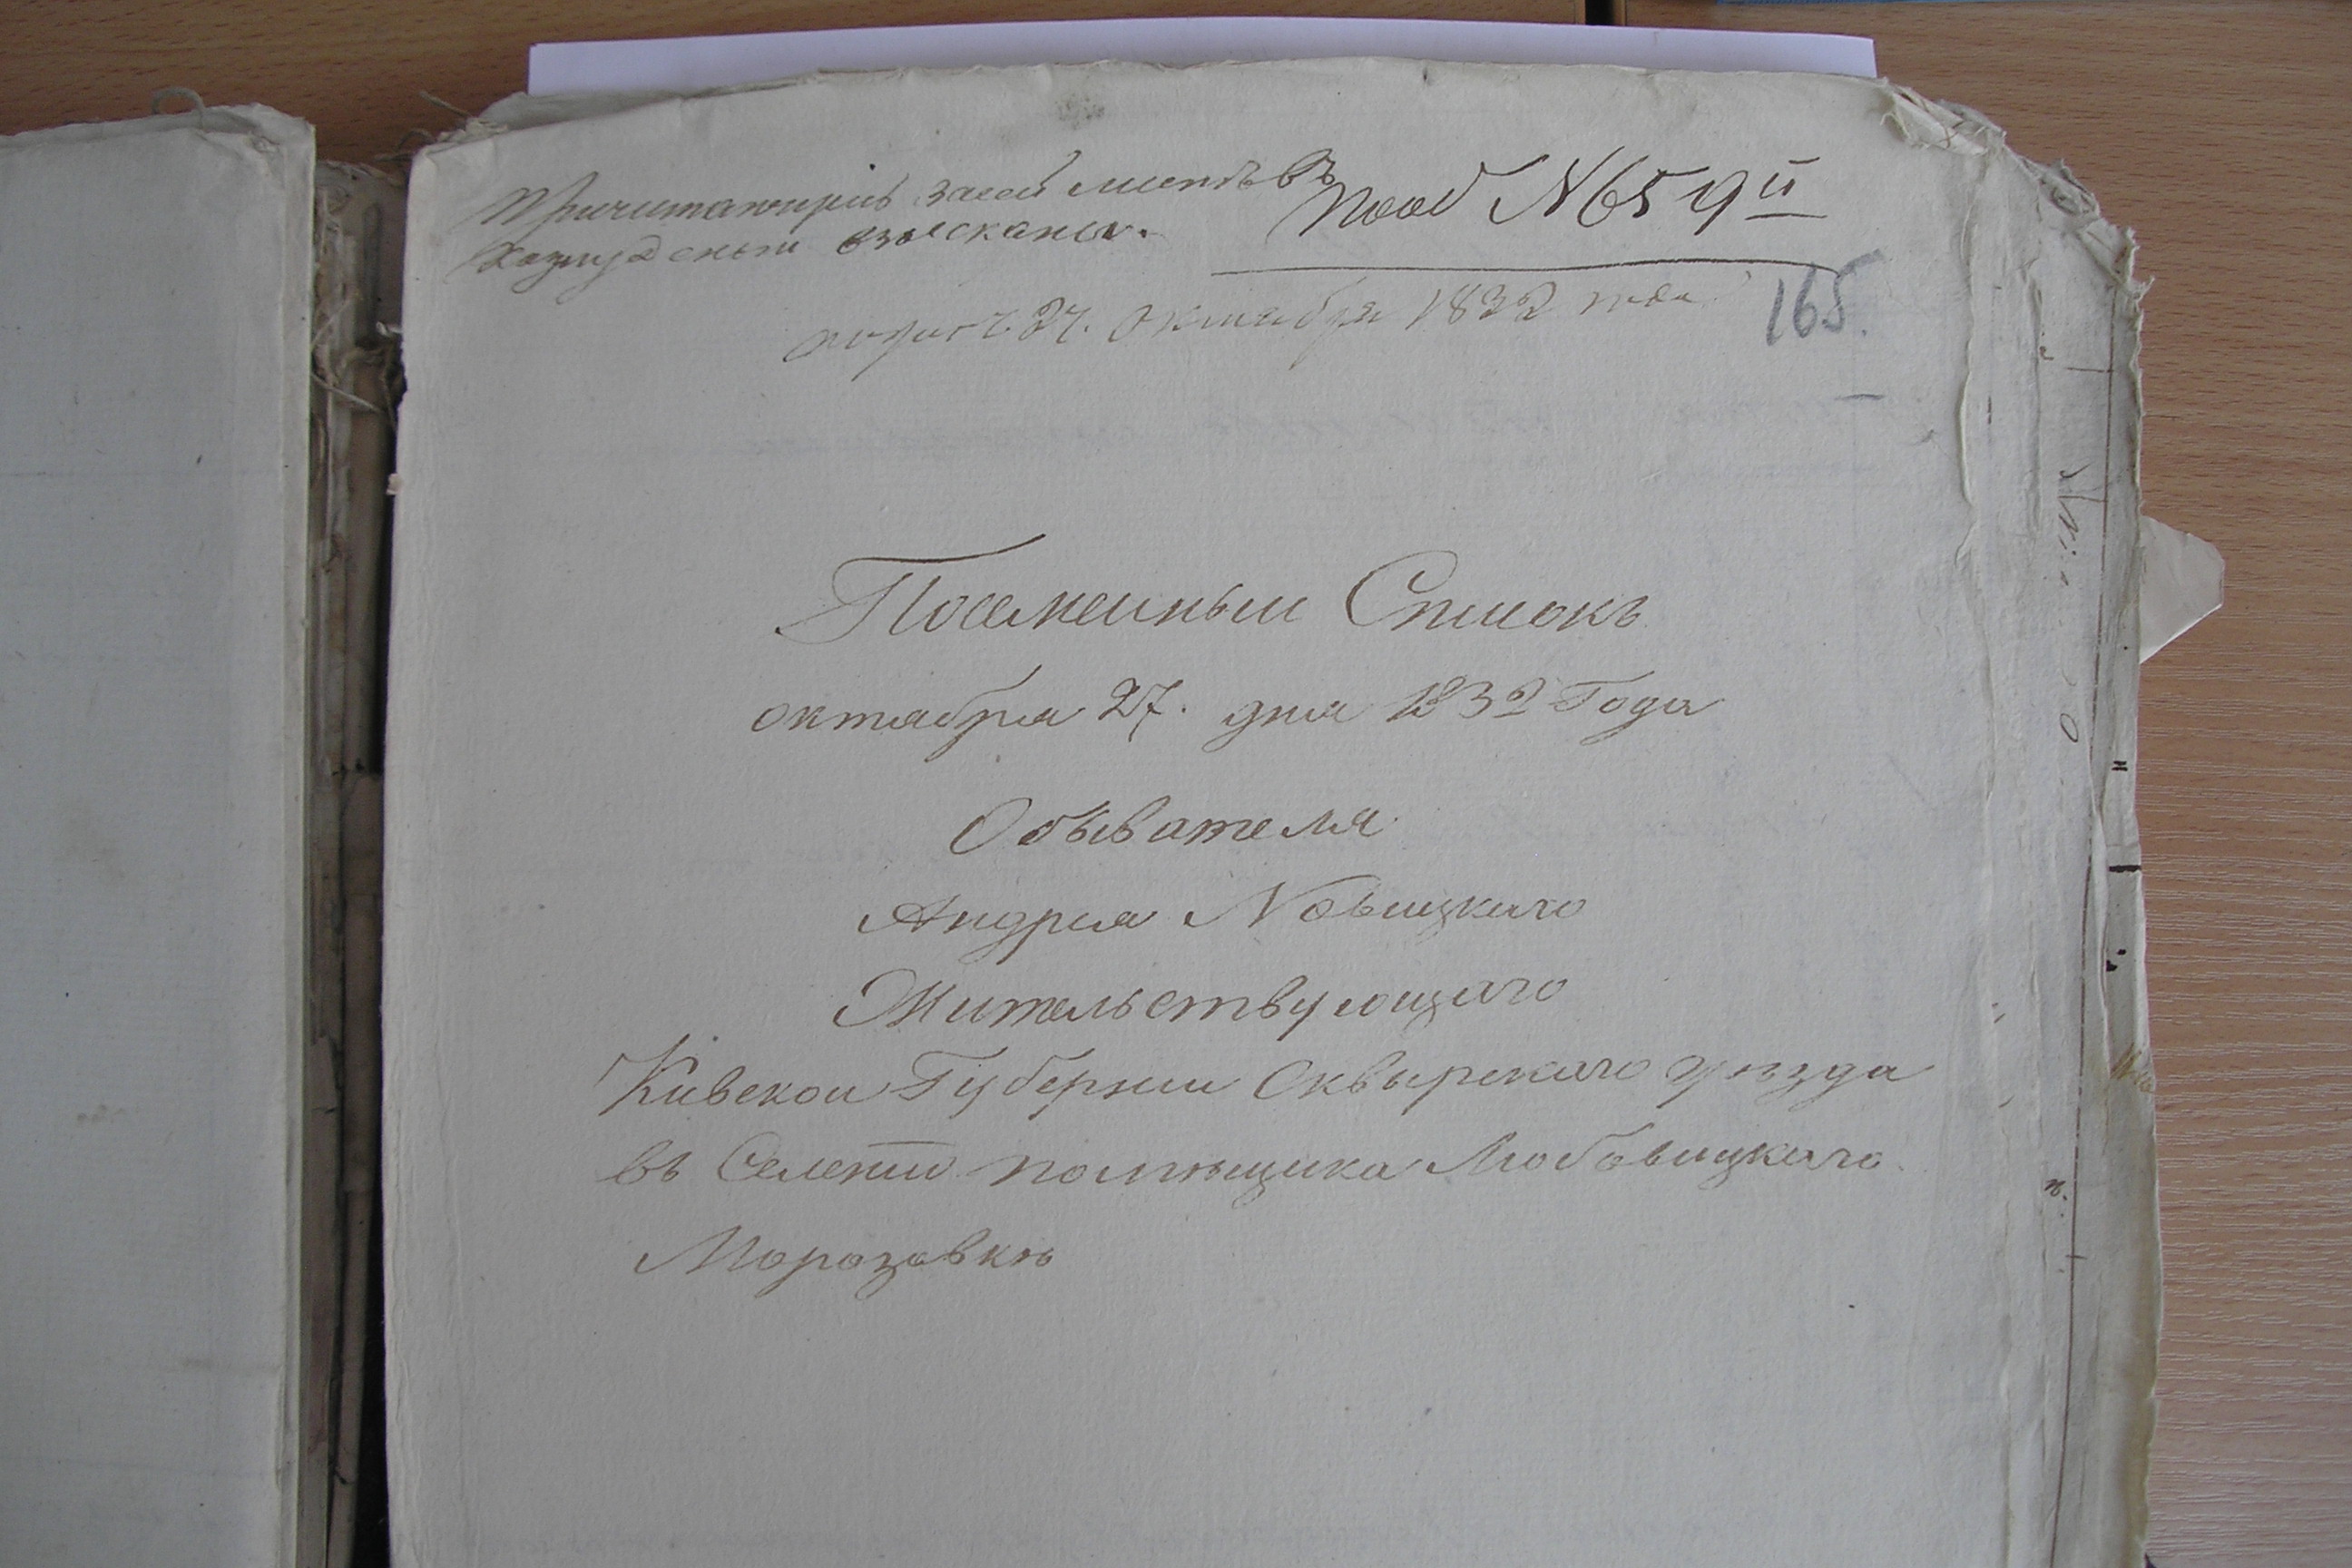 Причитающіеся за сей листъ въ
казну деньги взысканы.
под N 659й
подан 27. октября 1832 года
165.
Посемейныи Списокъ
октября 27. дня 1832 Года
Обывателя
Андрея Новицкаго
Жительствующаго
Кивскои Губернии Сквырскаго уѣзда
въ Селении помѣщика Любовицкаго
Морозовкѣ